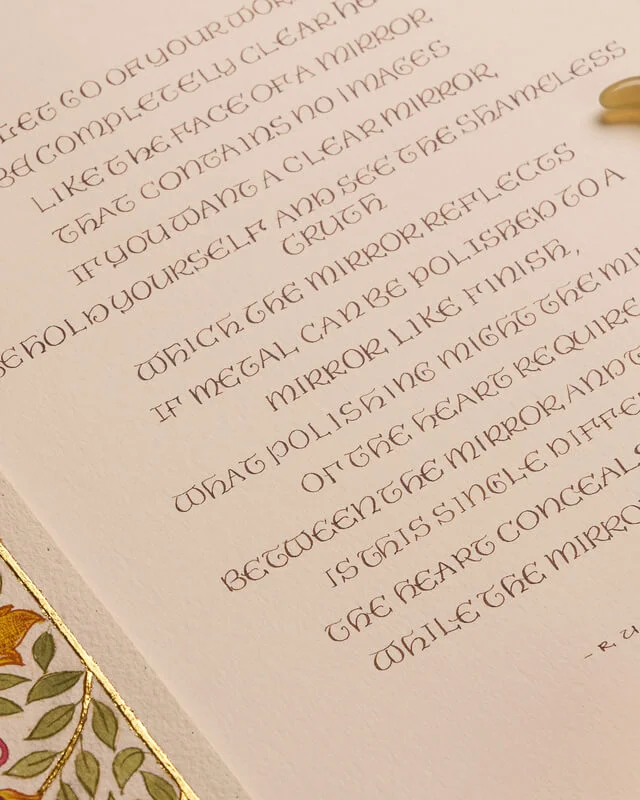 LET GO OF YOUR WOR
BE COMPLETELY CLEAR HE
LIKE THE FACE OF A MIRROR
THAT CONTAINS NO IMAGES
IF YOU WANT A CLEAR MIRROR,
BEHOLD YOURSELF AND SEE THE SHAMELESS
TRUTH
WHICH THE MIRROR REFLECTS
IF METAL CAN BE POLISHED TO A
MIRROR LIKE FINISH,
WHAT POLISHING MIGHT THE MI
OF THE HEART REQUIRE
BETWEEN THE MIRROR AND T
IS THIS SINGLE DIFFE
THE HEART CONCEALS
WHILE THE MIRRO
- RU